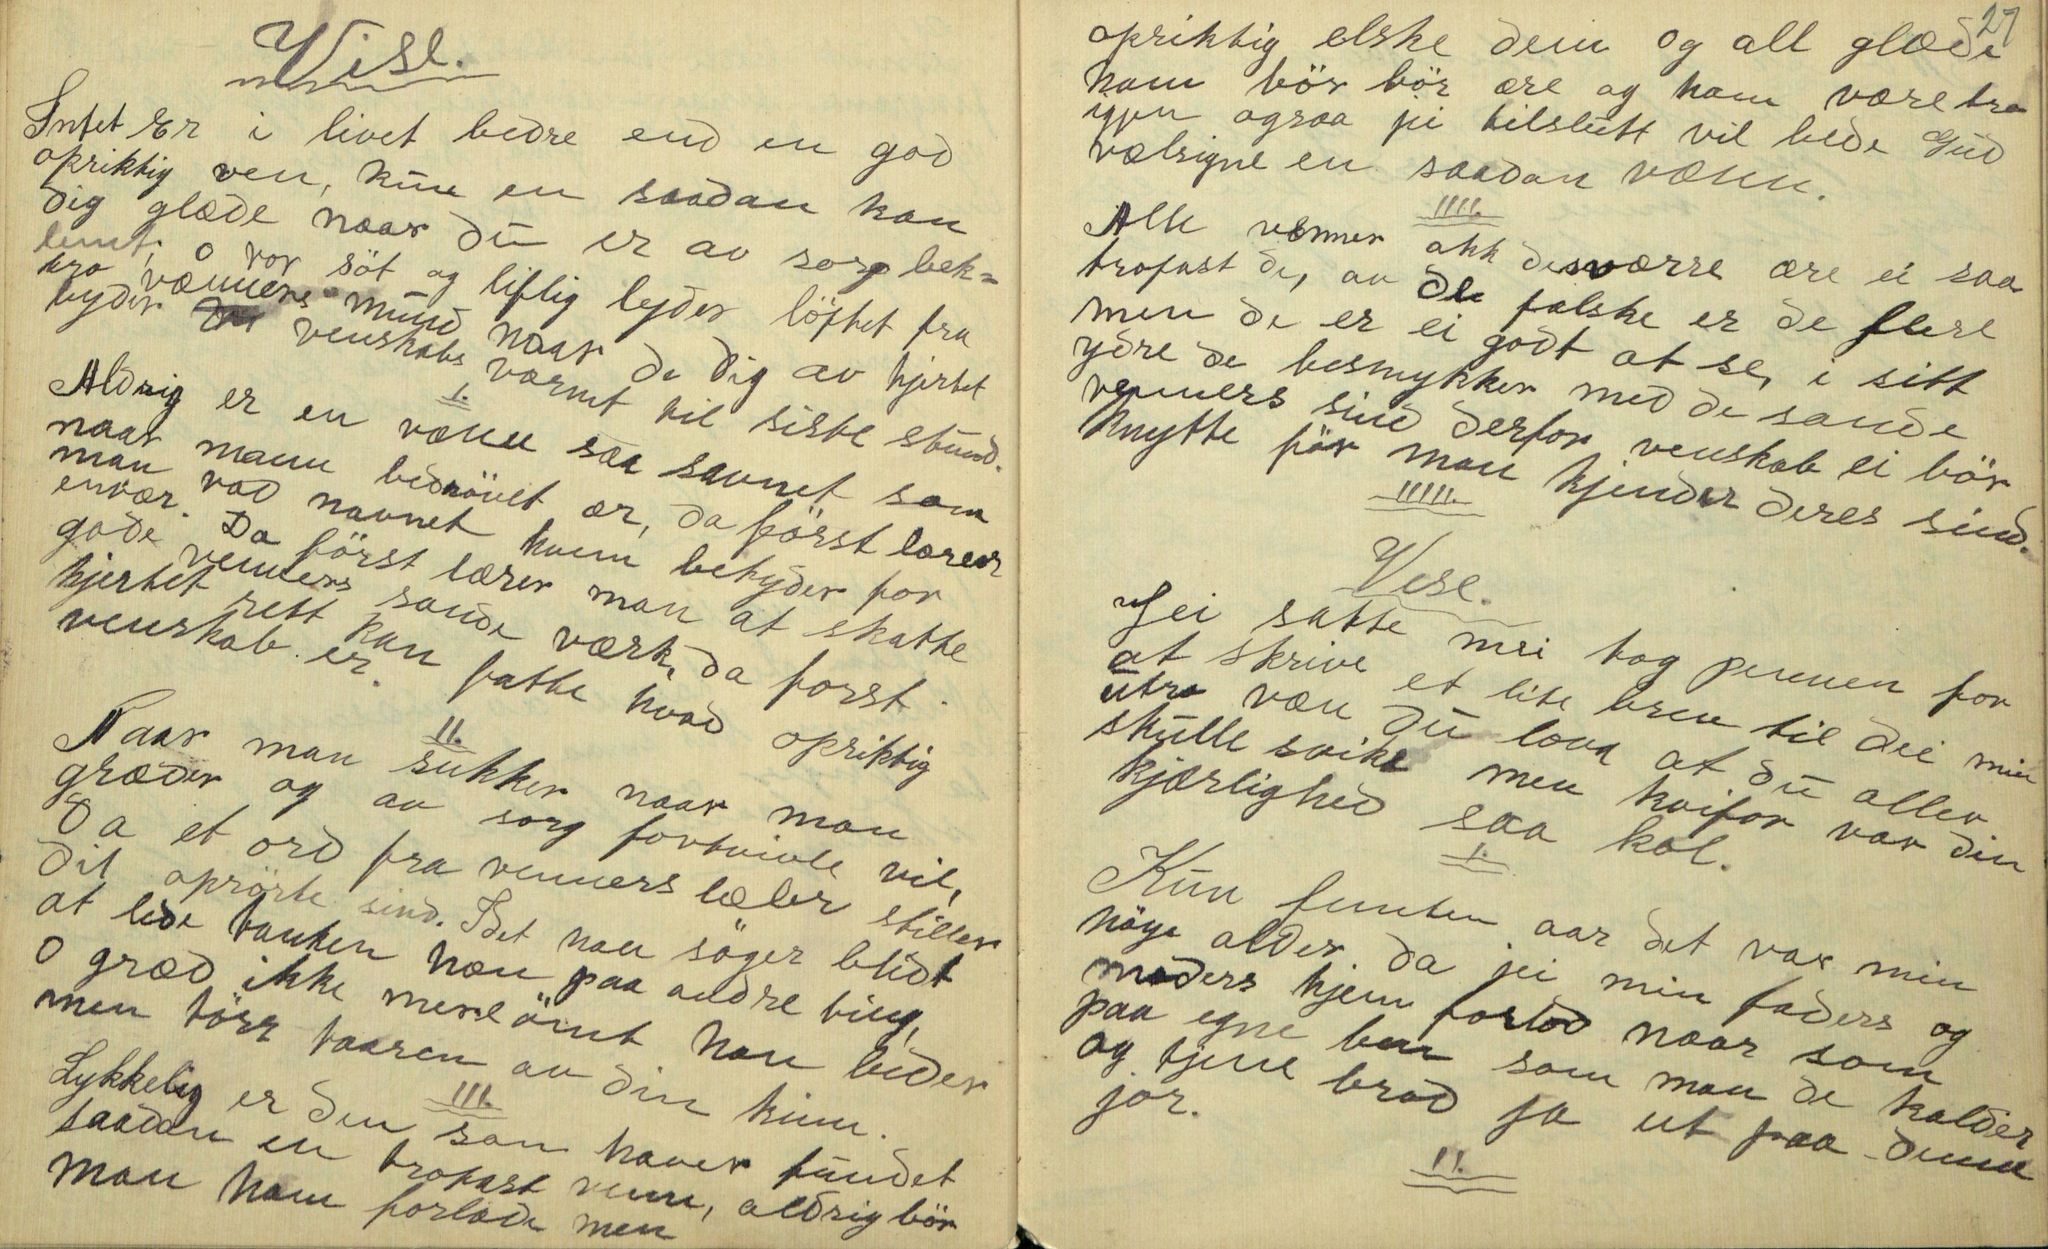 Vise.
Intet er i livet bedre end en god
opriktig ven, kun en saadan kan
dig glæde naar du er av sorg bek=
lemt, o vor söt og liflig lyder löftet fra
tro vænners mund naar de dig av hjertet
byder venskabs varmt til siste stund.
I.
Aldrig er en vænn saa savnet som
naar mann bedrövet ær, da först lærer
man vad navnet hvem betyder for
envær. Da först lærer man at skatte
gode venners sande værk, da forst
hjertet rett kan fatte hvad opriktig
venskab er.
II.
Naar man sukker naar man
græder og av sorg fortvivle vil,
Da et ord fra venners læber stiller
dit oprörte sind. Idet han söger blidt
at lede tanken hæn paa andre ting,
o græd ikke mere ömt han beder
men törr taaren av din kinn.
III.
Lykkelig er den som haver fundet
saadan en trofast venn, aldrig bör
man ham forlade men
27
opriktig elske dem og all glæde
ham bör bör ære og ham være tro
igjen ogsaa jei tilslutt vil bede Gud
vælsigne en saadan vænn.
IIII.
Alle venner akk desværre ære ei saa
trofast de, av de falske er de flere
men de er ei godt at se, i sitt
ydre de besmykker med de sande
venners sind derfor venskab ei bör
knytte för man kjender deres sind.
IIIII.
Vise.
Jei satte mei tog pennen for
at skrive et lite brev til dei min
utro væn du lova at du aller
skulle svike men hvifor var din
kjærlighed saa kol.
I.
Kun femten aar det var min
höye alder da jei min faders og
moders hjem forlod naar som
paa egne ben som man de kalder
og tjene bröd ja ut paa denne
jor.
II.